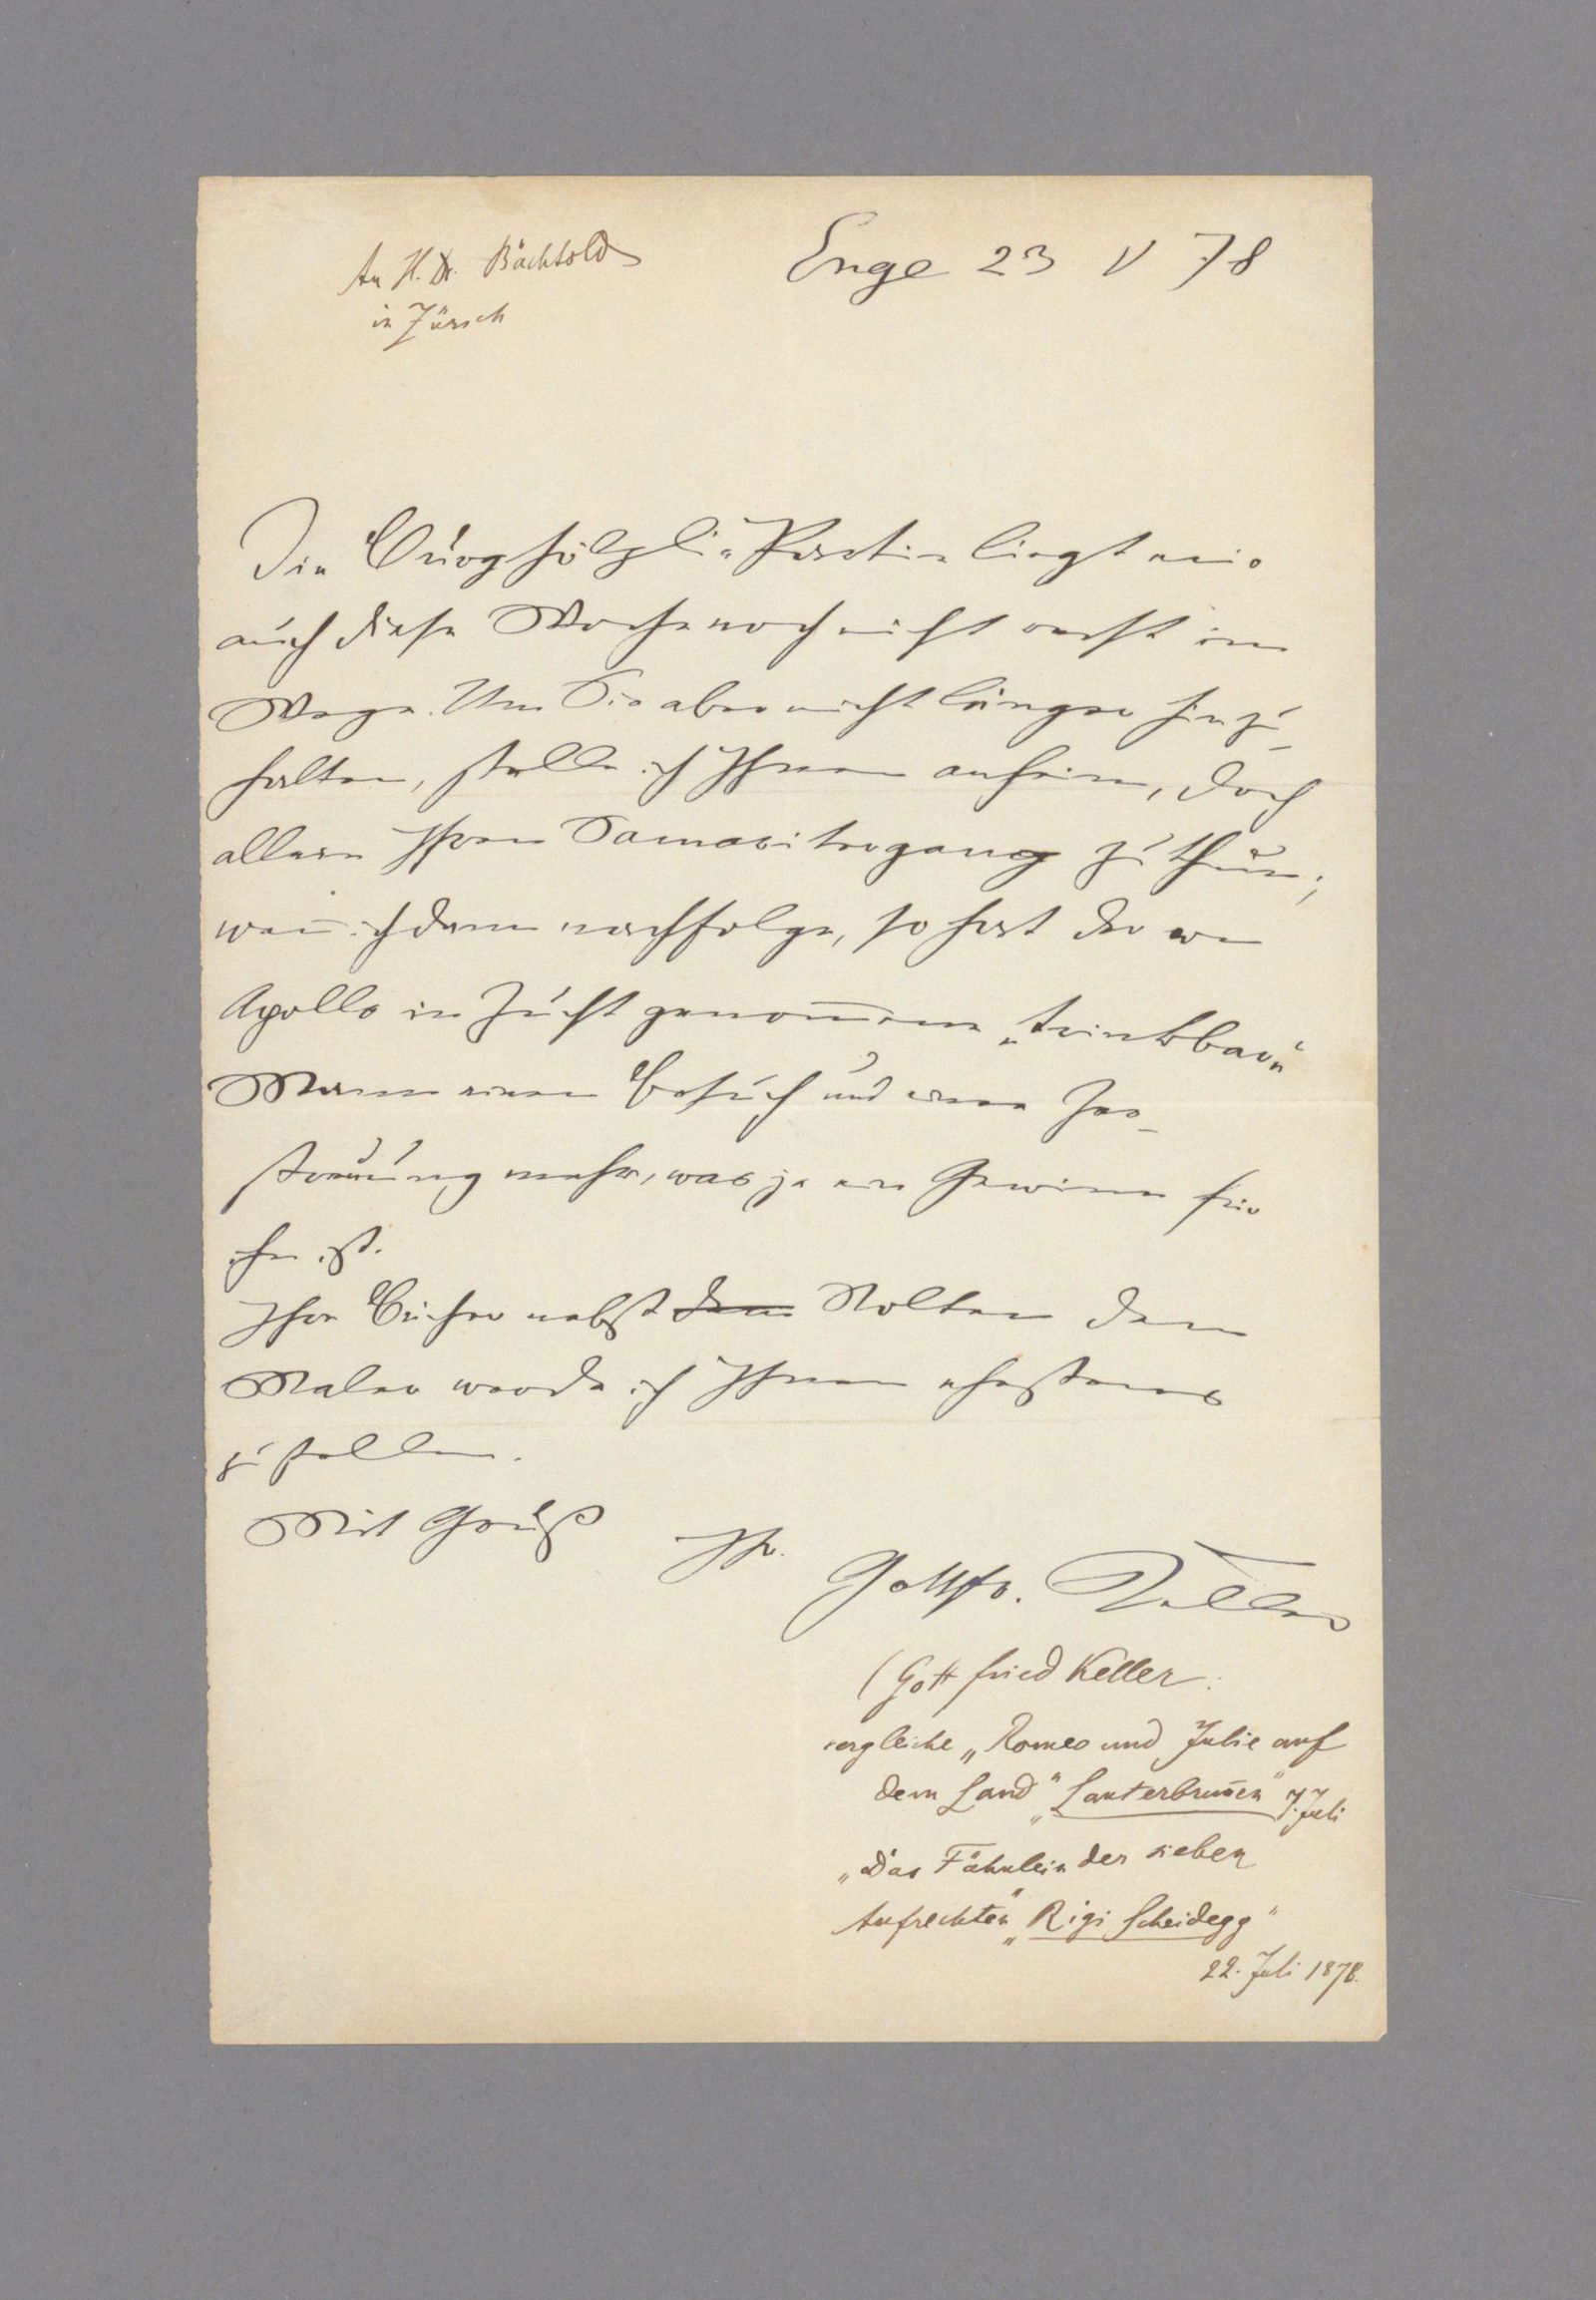 An H. Dr. Bächtold
in Zürich
Enge 23 V 78
Die Burghölzli-Partie liegt mir
auch diese Woche noch nicht recht im
Wege. Um Sie aber nicht länger hinzu-
halten, stelle ich Ihnen anheim, doch
allein Ihren Samaritergang zu thun;
wen̅ ich dann nachfolge, so hat der von
Apollo in Zucht genom̅ene „trinkbare“
Mann einen Besuch und eine Zer-
streuung mehr, was ja ein Gewinn für
ihn ist.
Ihre Bücher nebst dem Nolten dem
Maler werde ich Ihnen ehestens
zustellen.
Mit Gruß
Ihr
Gottfr. Keller
(Gottfried Keller:
vergleiche „Romeo und Julie auf
dem Land“ „Lauterbrun̅en“ 7. Juli
„Das Fähnlein der sieben
Aufrechten“ „Rigi Scheidegg“
22. Juli 1878.